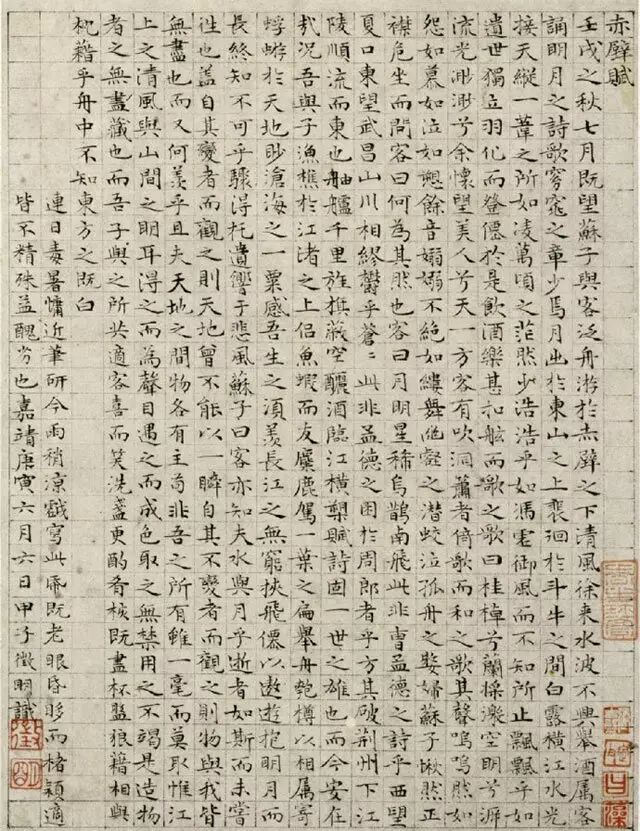 赤壁賦
壬戌之秋七月既望蘇子與客泛舟游於赤壁之下清風徐来水波不興舉酒属客
誦明月之詩歌窈窕之章少焉月出於東山之上裴洄於斗牛之間白露横江水光
接天縱一葦之所如凌萬頃之茫然浩浩乎如馮虚御風而不知所止飄飄乎如
遺世獨立羽化而登僊於是飲酒樂甚扣舷而歌之歌曰桂棹兮蘭槳擊空明兮泝
流光渺渺兮余懷望美人兮天一方客有吹洞簫者倚歌而和之歌其聲嗚嗚然如
怨如慕如泣如愬餘音嫋嫋不絶如縷舞幽壑之潜蛟泣孤舟之嫠婦蘇子愀然正
襟危坐而問客曰何為其然也客曰月明星稀烏鵲南飛此非曹孟德之詩乎西望
夏口東望武昌山川相繆鬱乎蒼〻此非孟德之困於周郎者乎方其破荆州下江
陵順流而東也舳艫千里旌旗蔽空釃酒臨江横槊賦詩固一世之雄也而今安在
哉况吾與子漁樵於江渚之上侶魚蝦而友麋鹿駕一葉之扁舉舟匏樽以相属寄
蜉蝣於天地眇滄海之一粟感吾生之須羨長江之無窮挾飛僊以遨遊抱明月而
長終知不可乎驟得托遺響於悲風蘇子曰客亦知夫水與月乎逝者如斯而未嘗
往也盖自其變者而觀之則天地曾不能以一瞬自其不變者而觀之則物與我皆
無盡也而又何羨乎且夫天地之間物各有主苟非吾之所有雖一毫而莫取惟江
上之清風與山間之明耳得之而為聲目遇之而成色取之無禁用之不竭是造物
者之無盡藏也而吾子與之所共適客喜而笑洗盞更酌肴核既盡杯盤狼藉相與
枕藉乎舟中不知東方之既白
連日毒暑慵近筆研今雨稍涼戲寫此帋既老眼昏眵而楮穎適
皆不精殊益醜劣也嘉靖庚寅六月六日甲子徵明識
徵明